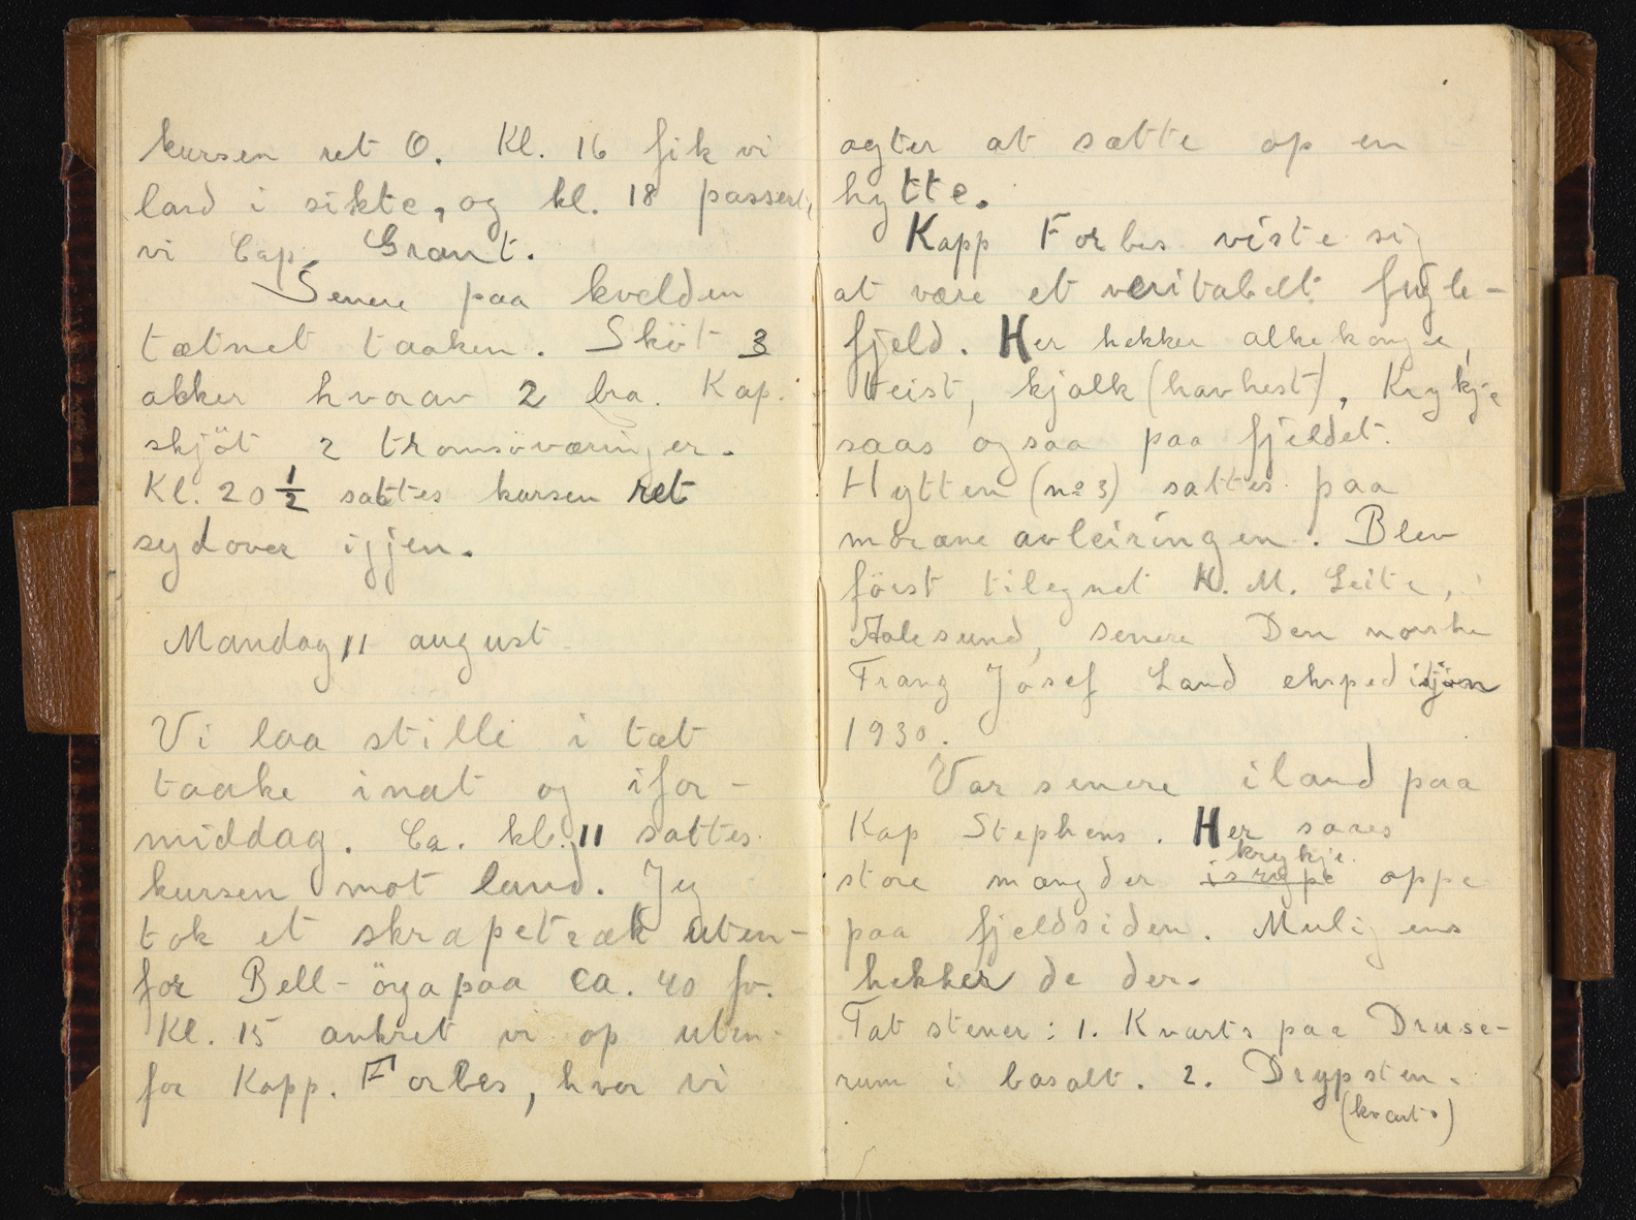 kursen ret O. Kl. 16 fik vi
land i sikte, og kl. 18 passert
vi Cap. Grant.
Senere paa kvelden
tætnet taaken. Sköt 3
akker hvorav 2 bra. Kap.
skjöt 2 tromsöværinger.
Kl. 20 1/2 sattes kursen ret
sydover igjen.
Mandag 11 august
Vi laa stille i tæt
taake inat og ifor-
middag. Ca. kl. 11 sattes
kursen mot land. Jeg
tok et skrapetræk uten-
for Bell-öya paa ca. 40 fv.
Kl. 15 ankret vi op uten-
for Kapp. Forbes, hvor vi
agter at sætte op en
hytte.
Kapp Forbes viste sig
at være et veritabelt fugle-
fjeld. Her hekker alkekonge,
teist, kjalk (havhest), Krykje
saas ogsaa paa fjeldet.
Hytten (no 3) sattes paa
moræneavleiringen. Blev
först tilegnet K. M. Leite,
Aalesund, senere Den norske
Franz Josef Land ekspedisjon
1930.
Var senere iland paa
Kap Stephens. Her saaes
krykje
store mængder isrype oppe
paa fjeldsiden. Muligens
hekker de der.
Tat stener: 1. Kvarts paa Druse-
rum i basalt. 2. Drypsten.
(kvarts)